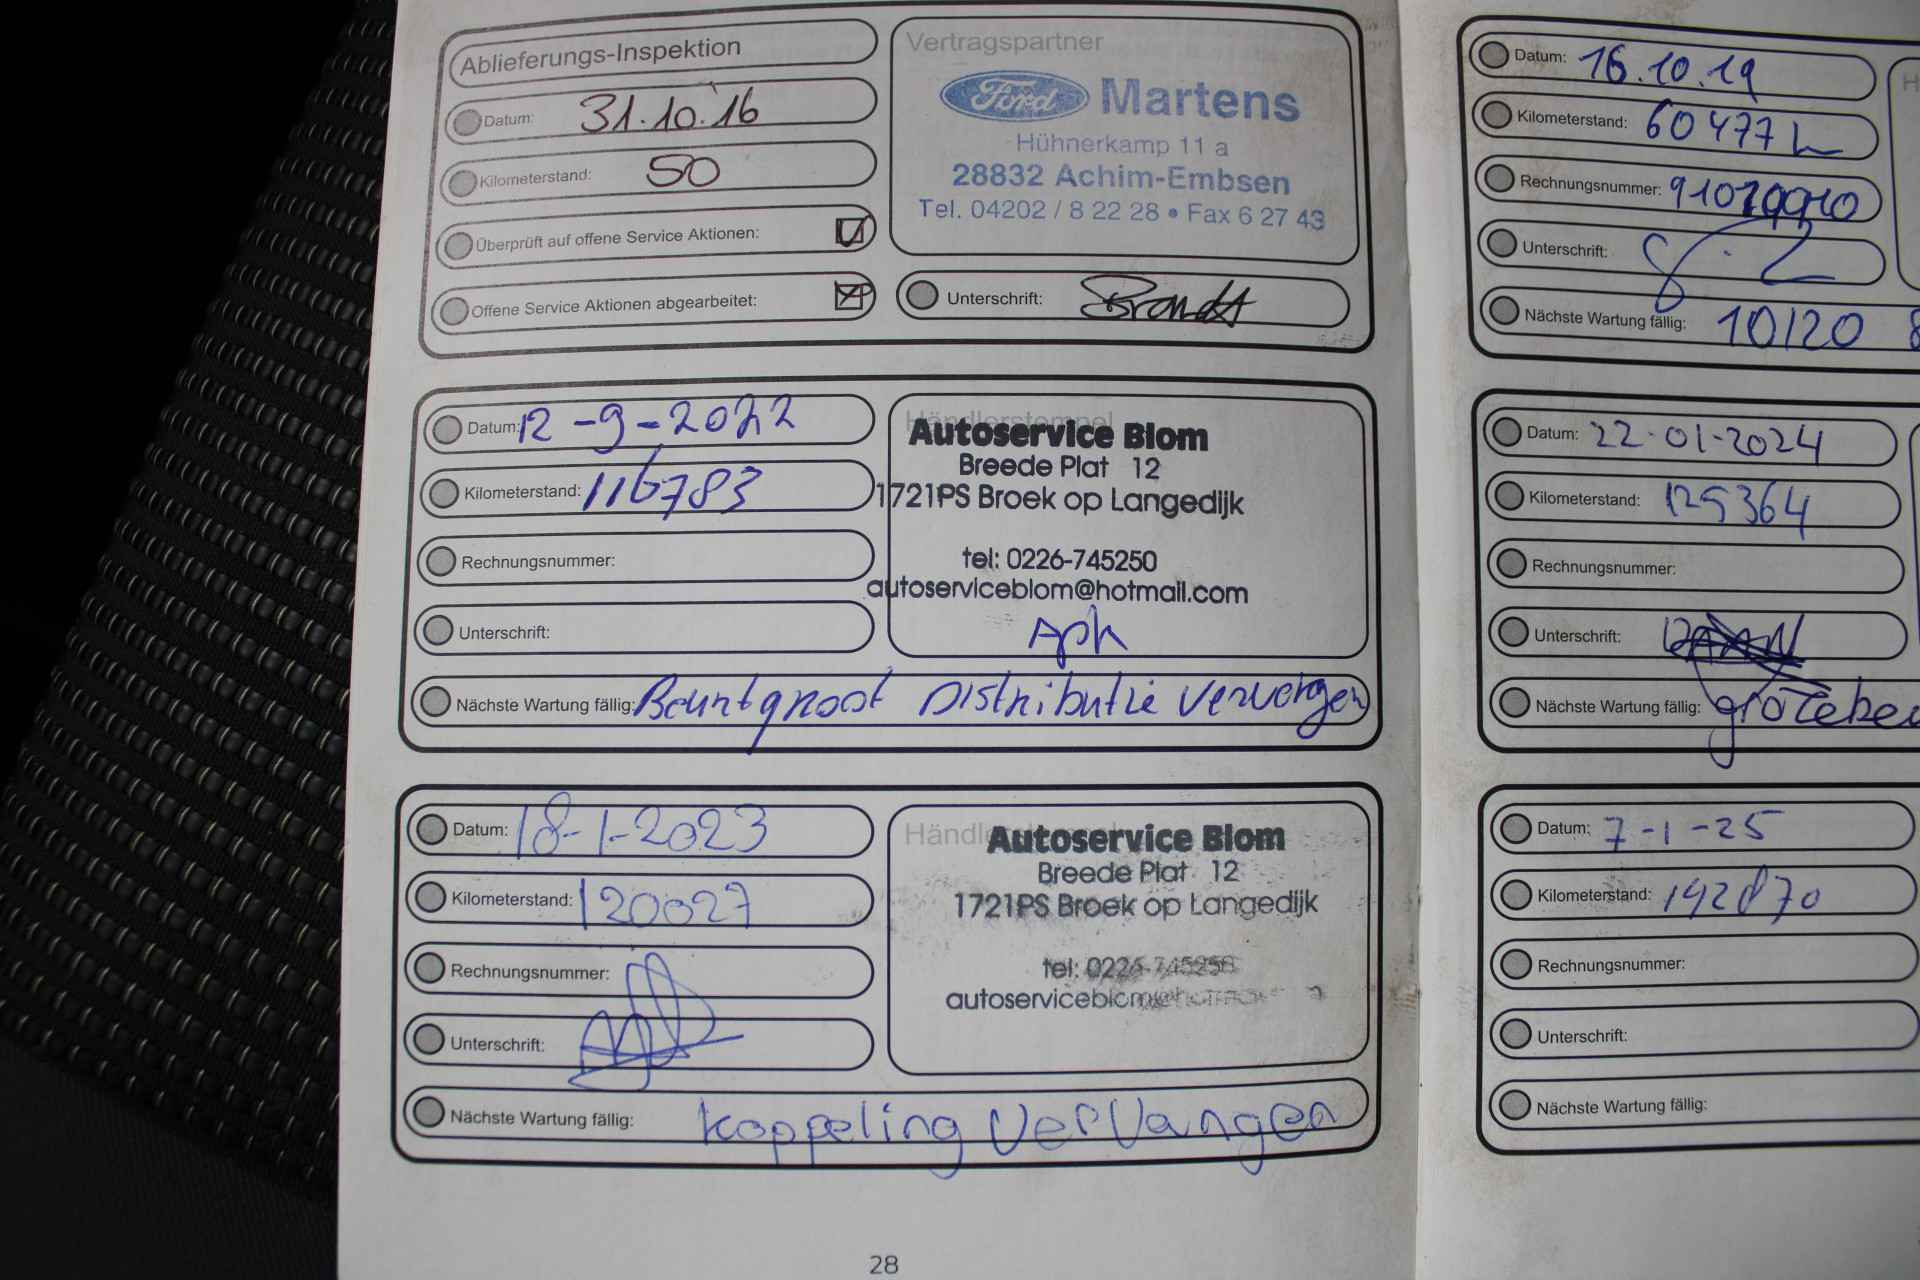 Ablieferungs-Inspektion
Datum: 31.10.16
Kilometerstand: 50
Überprüft auf offene Service Aktionen:
Offene Service Aktionen abgearbeitet:
Vertragspartner
Ford Martens
Hühnerkamp 11 a
28832 Achim-Embsen
Tel. 04202 / 8 22 28 • Fax 6 27 43
Unterschrift: Brandt
Datum: 12-9-2022
Kilometerstand: 116783
Rechnungsnummer:
Unterschrift:
Händlerstempel
Autoservice Blom
Breede Plat 12
1721PS Broek op Langedijk
tel: 0226-745250
autoserviceblom@hotmail.com
Nächste Wartung fällig: Beurt groot Distributie vervangen
Datum: 18-1-2023
Kilometerstand: 120027
Rechnungsnummer:
Unterschrift:
Händlerstempel
Autoservice Blom
Breede Plat 12
1721PS Broek op Langedijk
tel: 0226-745250
autoserviceblom@hotmail
Nächste Wartung fällig: Koppeling Vervangen
28
Datum: 16.10.19
Kilometerstand: 60477
Rechnungsnummer:
Unterschrift:
Nächste Wartung fällig: 10/20
Datum: 22-01-2024
Kilometerstand: 125364
Rechnungsnummer:
Unterschrift:
Nächste Wartung fällig:
Datum: 7-1-25
Kilometerstand: 142870
Rechnungsnummer:
Unterschrift:
Nächste Wartung fällig: